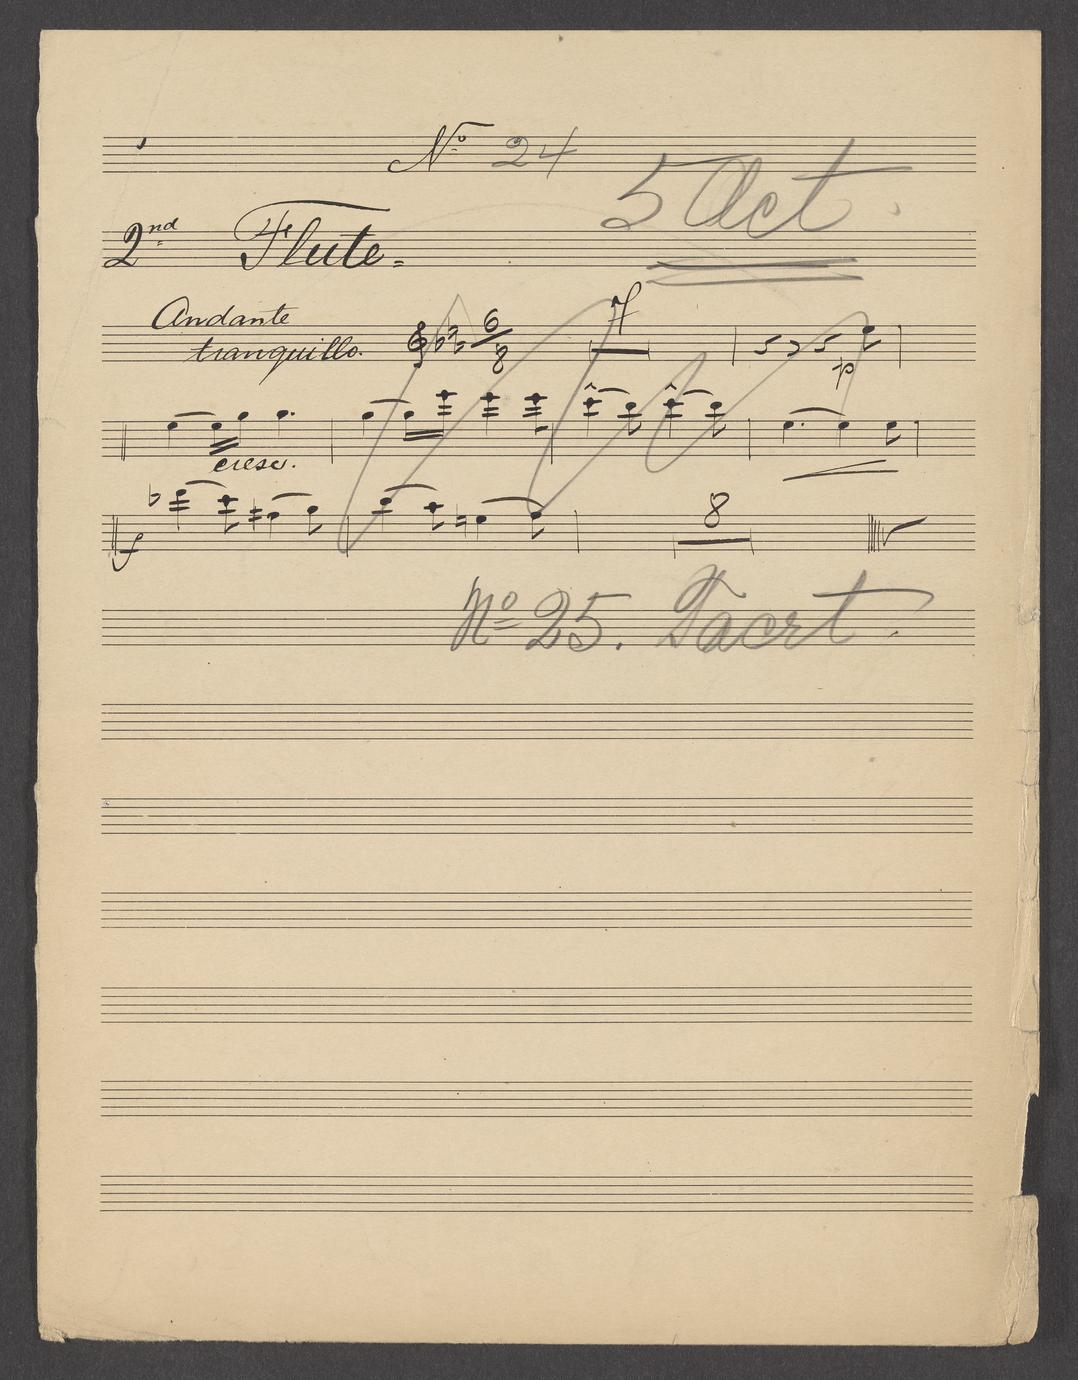 No 24
5 Act.
2nd Flute.
Andante
tranquillo.
6/8
7
p
cresc.
f
8
No 25. Tacet.